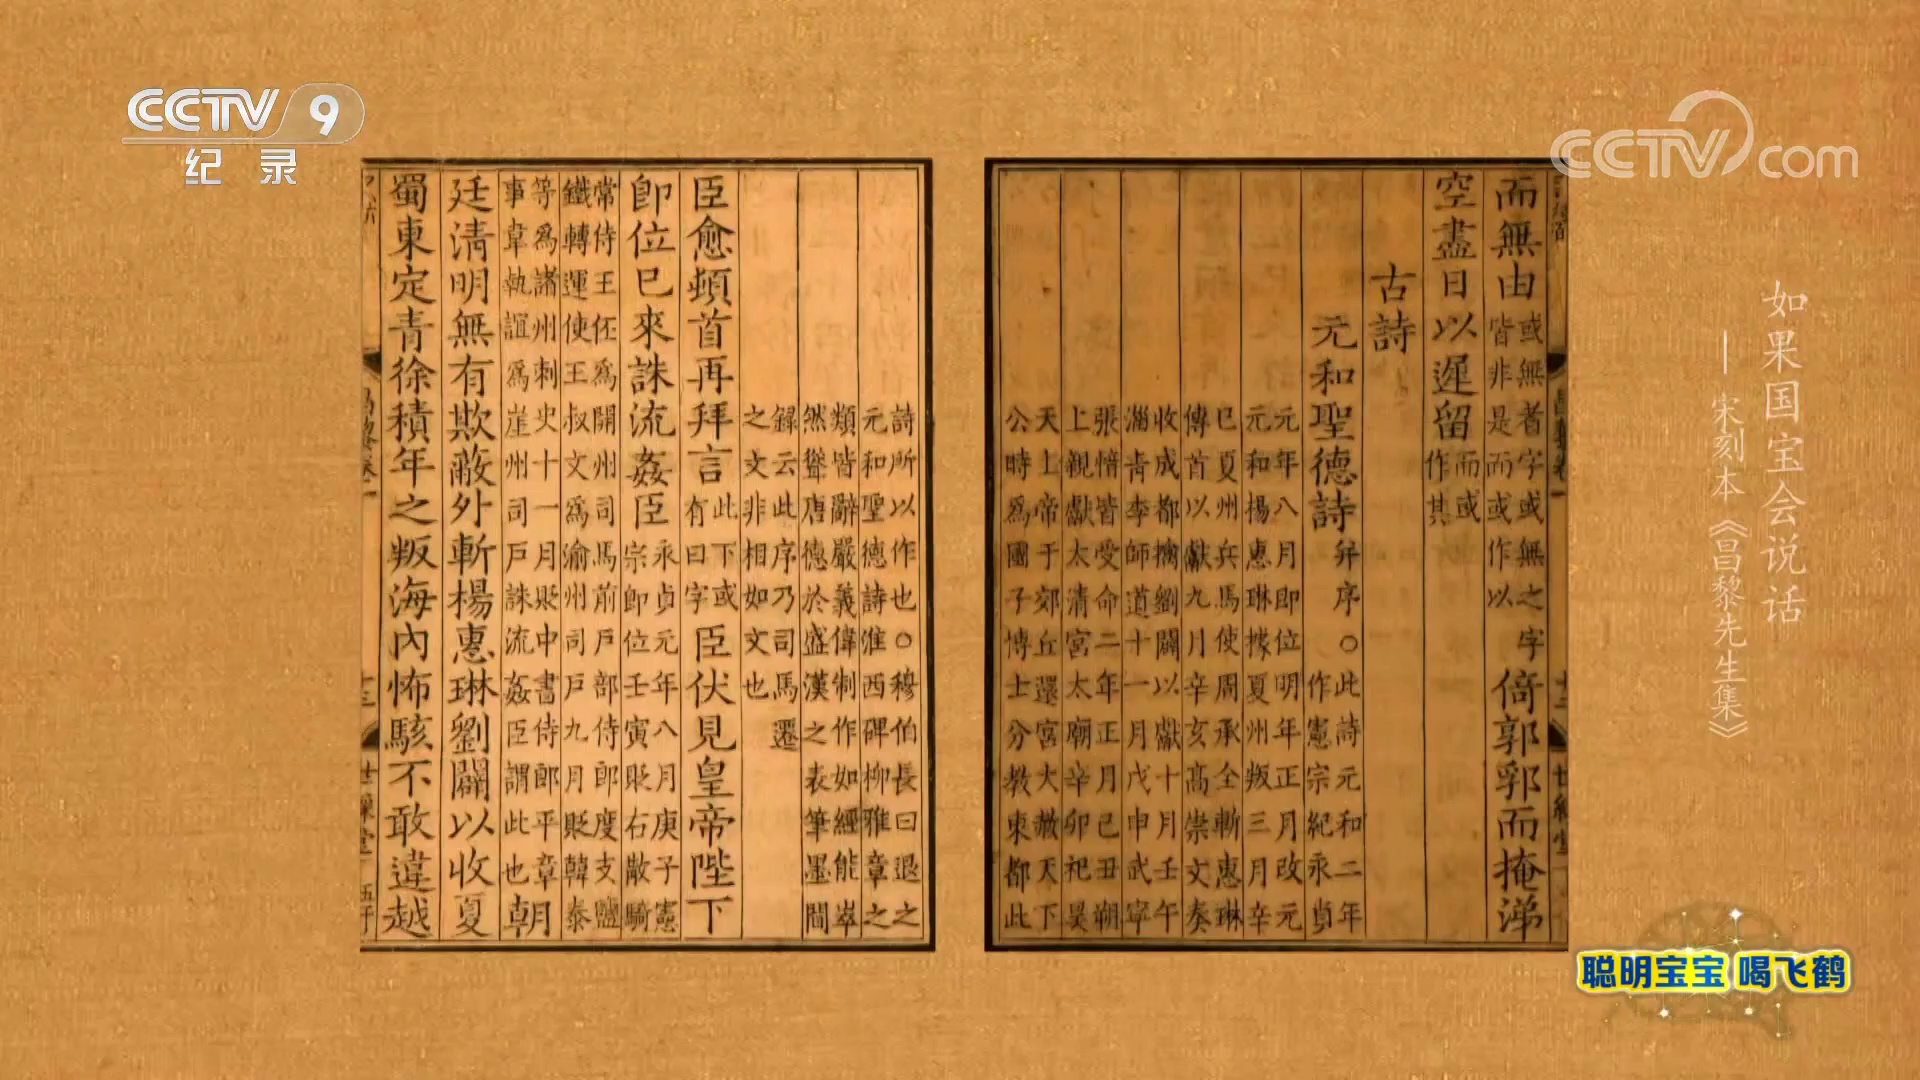 CCTV 9
纪录
CCTV.com
如果国宝会说话
— 宋刻本《昌黎先生集》
而無由或無者字或無之字皆非是而或作以倚郭郛而掩涕
空盡日以遲留而或作其
古詩
元和聖德詩并序○此詩元和二年作憲宗紀永貞
元年八月即位明年正月改元
元和楊惠琳據夏州叛三月辛
巳夏州兵馬使周承全斬惠琳
傳首以獻九月辛亥高崇文奏
收成都擒劉闢以獻十月壬午
淄青李師道十一月戊申武寧
張愔皆受命二年正月己丑朔
上親獻太清宮太廟辛卯祀昊
天上帝于郊丘還宮大赦天下
公時爲國子博士分教東都此
詩所以作也○穆伯長曰退之
元和聖德詩淮西碑柳雅章之
類皆辭嚴義偉制作如經能崒
然聳唐德於盛漢之表筆墨間
錄云此序乃司馬遷
之文非相如文也
臣愈頓首再拜言此下或有曰字臣伏見皇帝陛下
即位巳來誅流姦臣永貞元年八月庚子憲宗即位壬寅貶右散騎
常侍王伾爲開州司馬前戶部侍郎度支鹽
鐵轉運使王叔文爲渝州司戶九月貶韓泰
等爲諸州刺史十一月貶中書侍郎平章
事韋執誼爲崖州司戶誅流姦臣謂此也朝
廷清明無有欺蔽外斬楊惠琳劉闢以收夏
蜀東定青徐積年之叛海內怖駭不敢違越
聪明宝宝 喝飞鹤